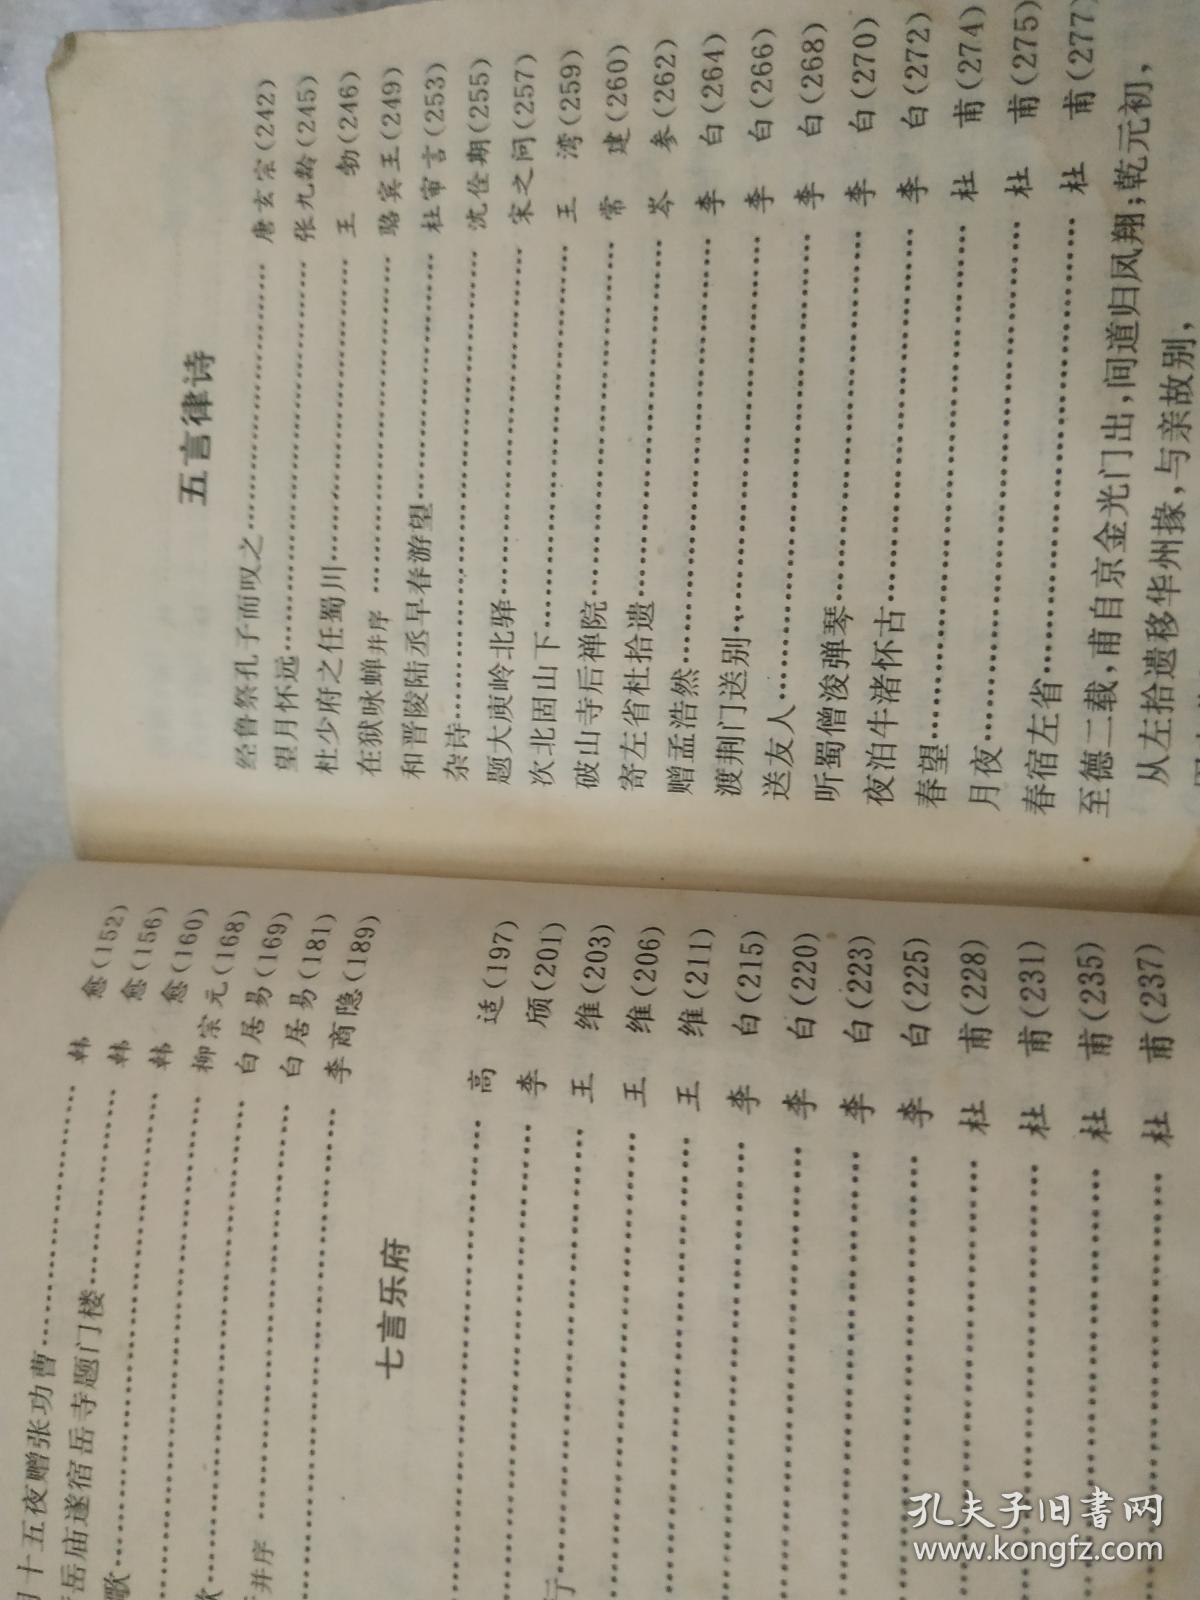 月十五夜赠张功曹……韩 愈(152)
岳庙遂宿岳寺题门楼……韩 愈(156)
歌……韩 愈(160)
……柳宗元(168)
歌……白居易(169)
并序……白居易(181)
……李商隐(189)
七言乐府
……高 适(197)
……李 颀(201)
行……王 维(203)
……王 维(206)
……王 维(211)
……李 白(215)
……李 白(220)
……李 白(223)
……李 白(225)
……杜 甫(228)
……杜 甫(231)
……杜 甫(235)
……杜 甫(237)
五言律诗
经鲁祭孔子而叹之……唐玄宗(242)
望月怀远……张九龄(245)
杜少府之任蜀川……王 勃(246)
在狱咏蝉并序……骆宾王(249)
和晋陵陆丞早春游望……杜审言(253)
杂诗……沈佺期(255)
题大庾岭北驿……宋之问(257)
次北固山下……王 湾(259)
破山寺后禅院……常 建(260)
寄左省杜拾遗……岑 参(262)
赠孟浩然……李 白(264)
渡荆门送别……李 白(266)
送友人……李 白(268)
听蜀僧浚弹琴……李 白(270)
夜泊牛渚怀古……李 白(272)
春望……杜 甫(274)
月夜……杜 甫(275)
春宿左省……杜 甫(277)
至德二载,甫自京金光门出,间道归凤翔;乾元初,
从左拾遗移华州掾,与亲故别,
孔夫子旧书网
www.kongfz.com